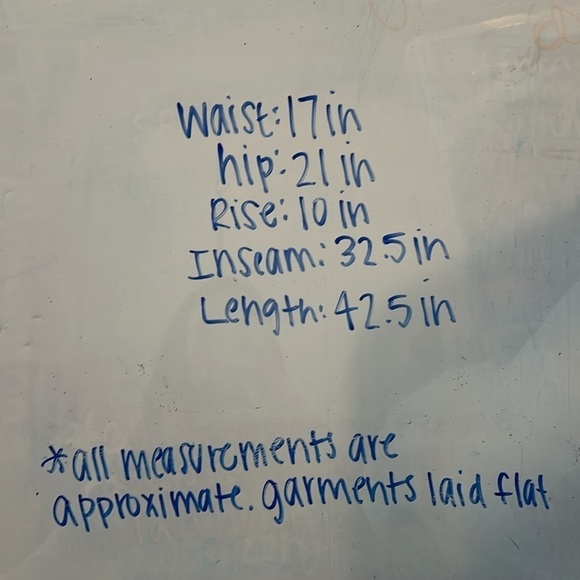 Waist: 17in
hip: 21 in
Rise: 10 in
Inseam: 32.5in
Length: 42.5 in
*all measurements are
approximate. garments laid flat